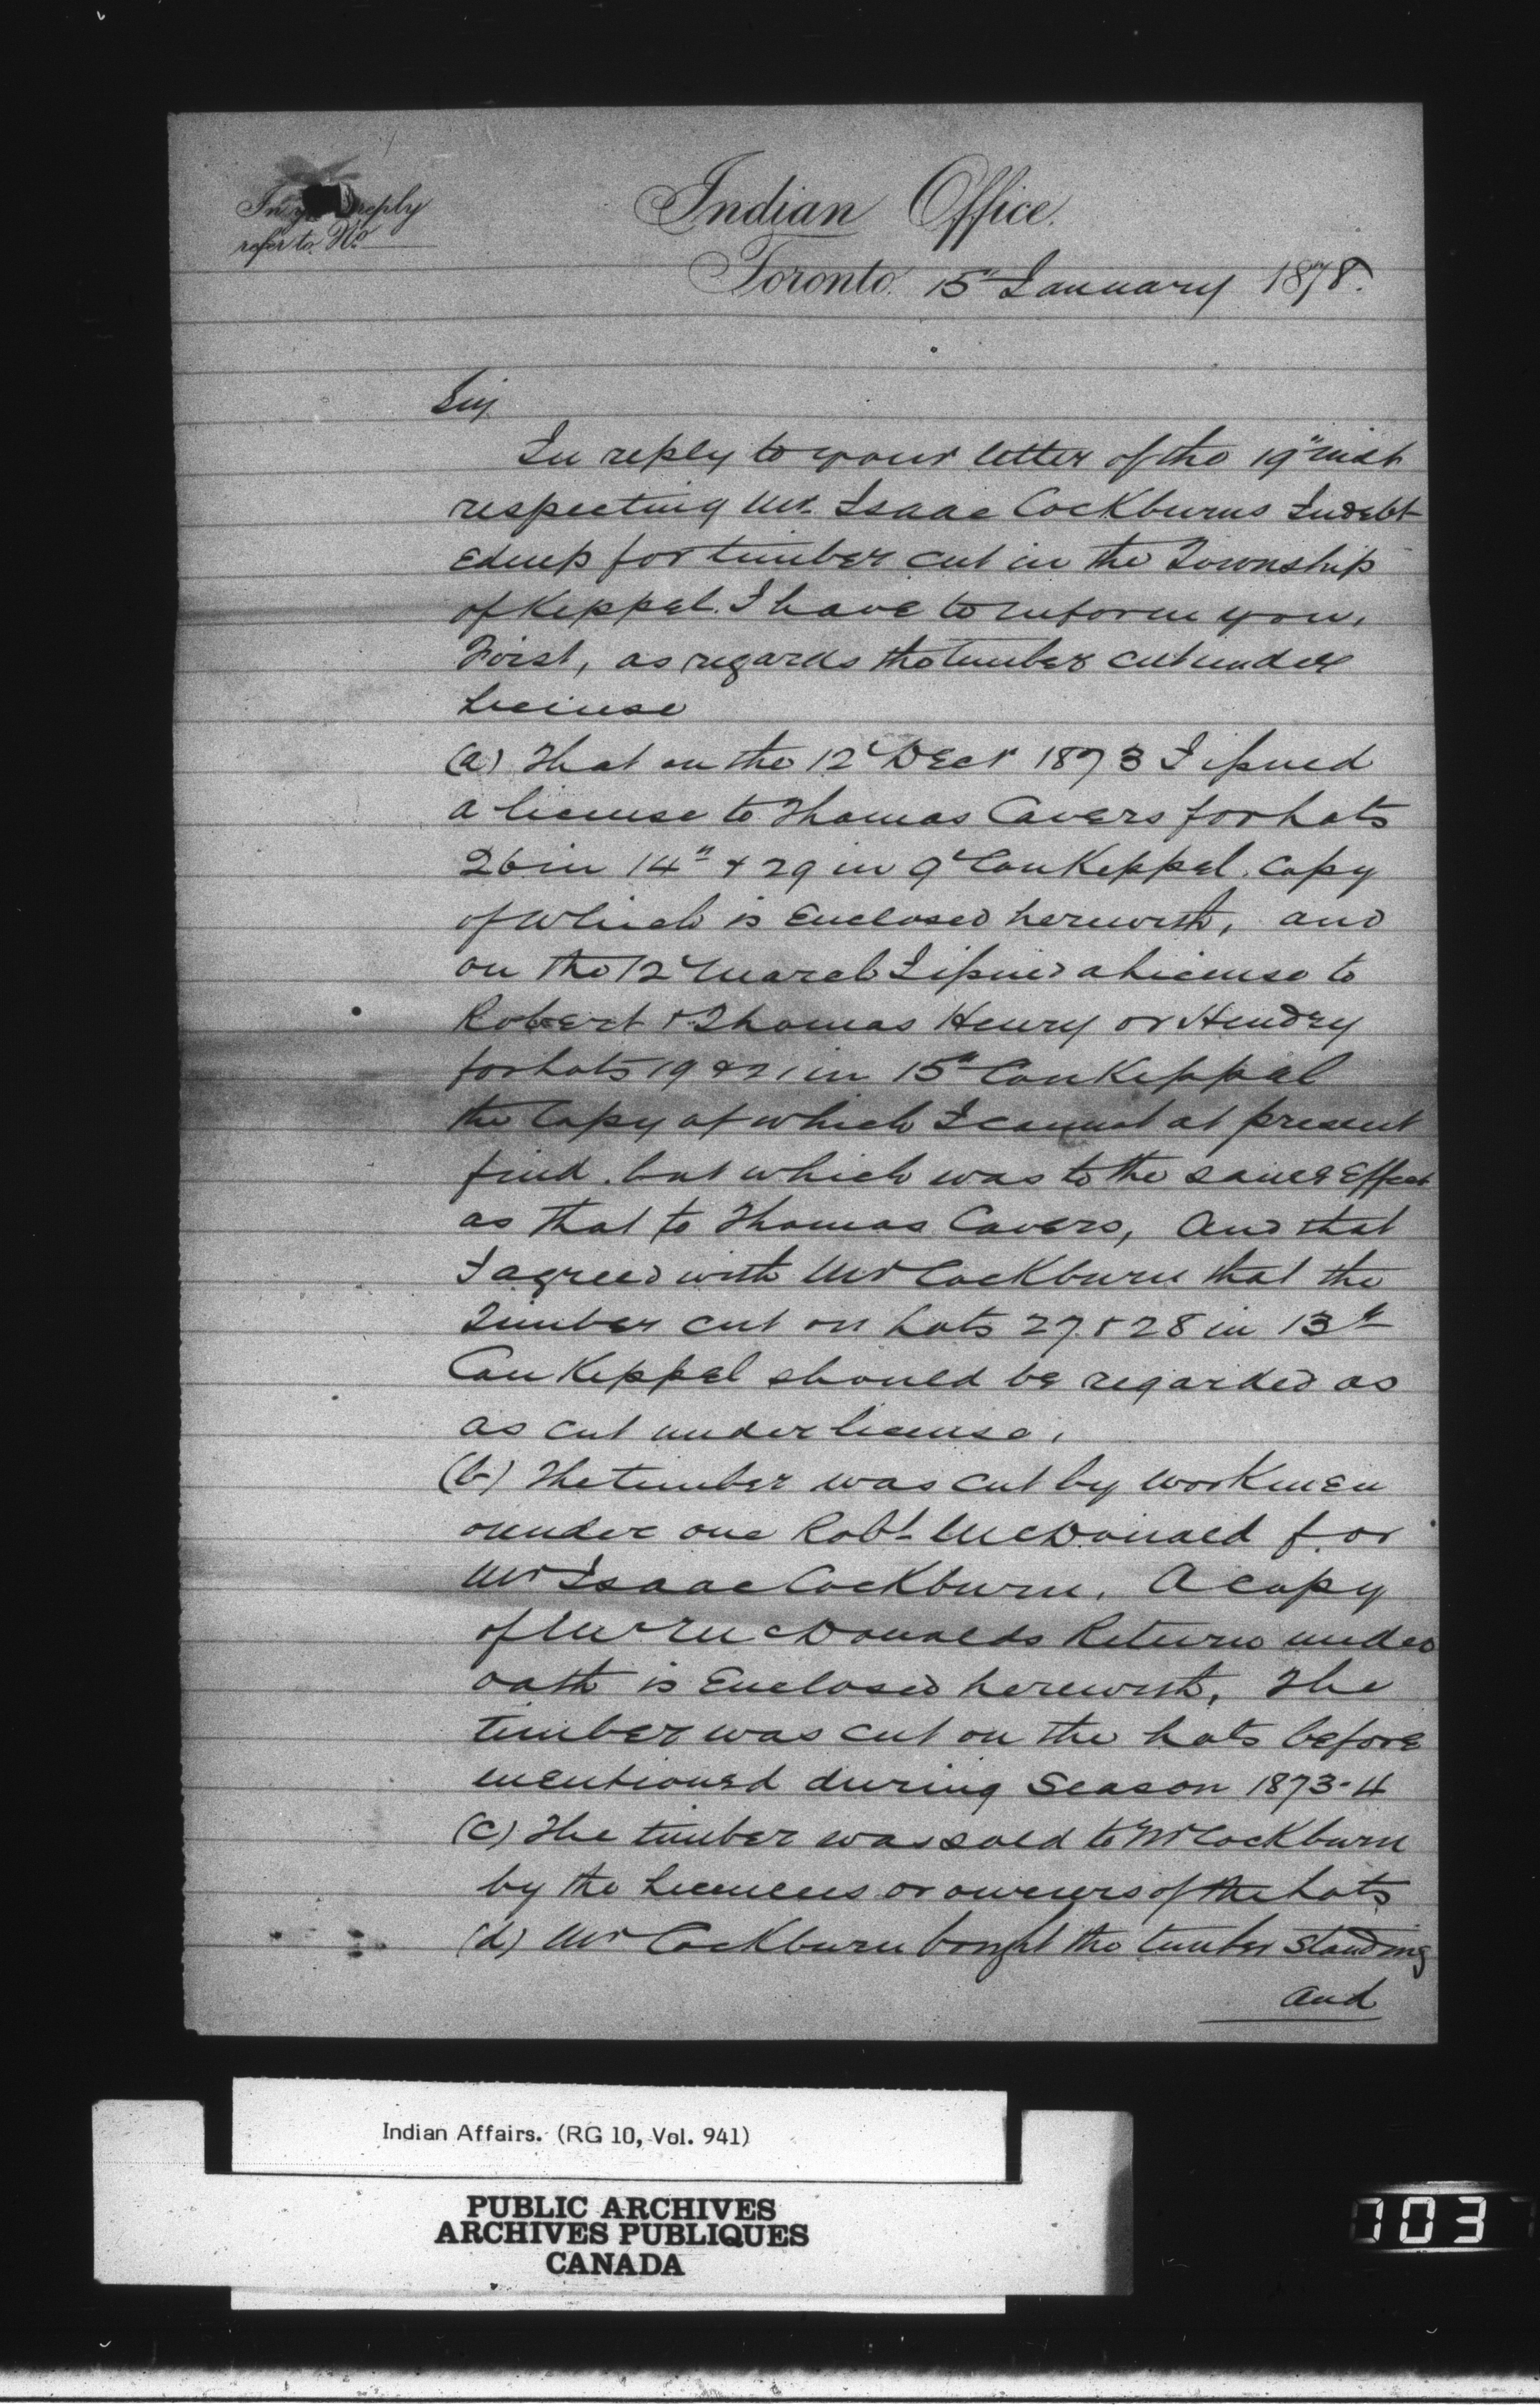 In your reply
refer to No
Indian Office.
Toronto 15" January 1878.
Sir
In reply to your letter of the 19" inst
respecting Mr. Isaac Cockburns Indebt
edness for timber cut in the Township
of Keppel. I have to inform you,
First, as regards the timber cut under
License
(a) That on the 12" Decr 1873 I issued
a license to Thomas Cavers for Lots
26 in 14" & 29 in 9" Con Keppel. Copy
of which is Enclosed herewith, and
on the 12" March I issued a License to
Robert & Thomas Henry or Hendry
for Lots 19 & 21 in 15" Con Keppel
the Copy of which I cannot at present
find. but which was to the same Effect
as that to Thomas Cavers, And that
I agreed with Mr Cockburn that the
Timber cut on Lots 27 & 28 in 13"
Con Keppel should be regarded as
as cut under license.
(b) The timber was cut by workmen
under one Robt McDonald for
Mr Isaac Cockburn. A copy
of Mr McDonalds Return under
oath is Enclosed herewith. The
timber was cut on the Lots before
mentioned during Season 1873-4
(c) The timber was sold to Mr Cockburn
by the Licencees or owners of the Lots
(d) Mr Cockburn bought the timber Standing
and
Indian Affairs. (RG 10, Vol. 941)
PUBLIC ARCHIVES
ARCHIVES PUBLIQUES
CANADA
703